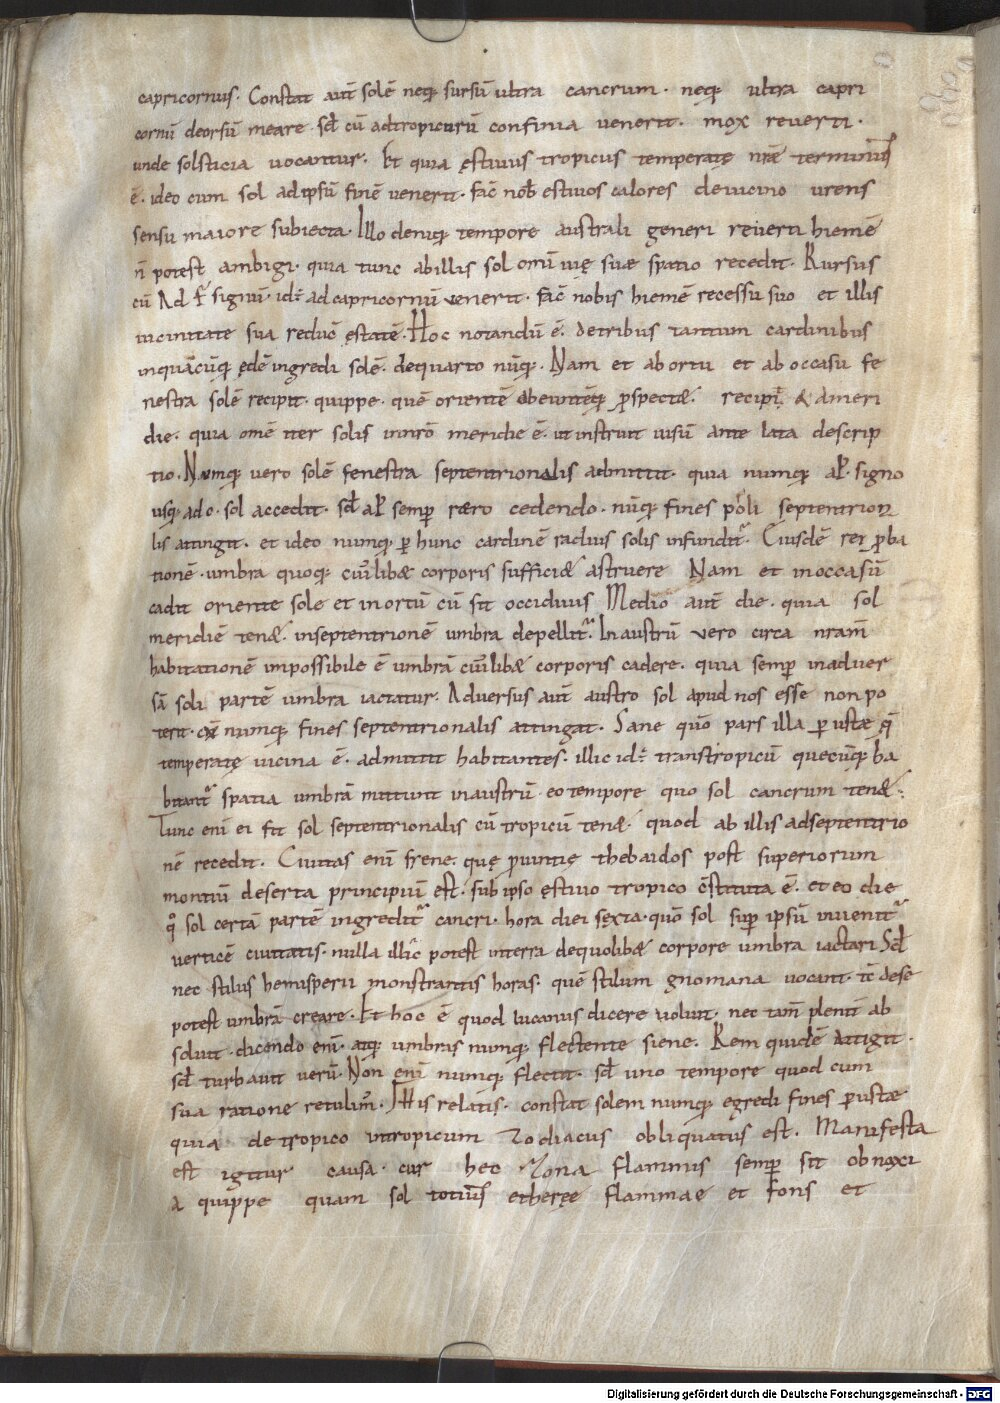 capricornius. Constat aut̄ solē neq; sursū ultra cancrum. neq; ultra capri
cornū deorsū meare. sed cū ad tropicorū confinia venerit. mox reverti.
unde solsticia vocantur. Et quia ęstivus tropicus temperatę nr̄ae terminus
ē. ideo cum sol ad ipsū finē venerit. fac̄ nob̄ estivos calores de vicino urens
sensu maiore subiecta. Illo deniq; tempore australi generi reverti hiemē
n̄ potest ambigi. quia tunc ab illis sol omi vię suae spatio recedit. Rursus
cū Ad F signū. id; ad capricornū venerit. fac̄ nobis hiemē recessu suo et illis
vicinitate sua reduc̄ ęstatē. Hoc notandū ē. de tribus tantum cardinibus
in quācūq; ędē ingredi solē. de quarto nūq;. Nam et ab ortu et ab occasu fe
nestra solē recipit. quippe. quę orientē obeuntēq; pspectæ. recipit̄ & a meri
die. quia omē iter solis in nrō meridie ē. ut instruit visū ante lata descrip
tio. Numq; vero solē fenestra septentrionalis admittit. quia numq; a F. signo
usq; ad c. sol accedit. sed a F semp̄ retro cedendo. nūq; fines poli septentriona
lis attingit. et ideo numq; p hunc cardinē radius solis infundit̄. Eiusdē rei pba
tionē. umbra quoq; cui'libæ corporis sufficiæ astruere Nam et in occasū
cadit oriente sole et in ortū cū sit occiduus Medio aut̄ die. quia sol
meridiē tenæ. in septentrionē umbra depellit̄. In austrū vero circa nr̄am
habitationē impossibile ē umbrā cui'libæ corporis cadere. quia semp̄ in adver
sā soli partē umbra iactatur. Adversus aut̄ austro sol apud nos esse non po
terit. cū numq; fines septentrionalis attingat. Sane quō pars illa p ustæ q̄
temperatę vicina ē. admittit habitantes. illic id; trans tropicū quecūq; ha
bitant̄ spatia umbrā mittunt in austrū. eo tempore quo sol cancrum tenæ.
Tunc eni ei fit sol septentrionalis cū tropicū tenæ. quod ab illis ad septentrio
nē recedit. Civitas eni syene. quę pvintię thebaidos post superiorum
montiū deserta principiū est. sub ipso ęstivo tropico cstituta ē. et eo die
q° sol certā partē ingredit̄ cancri. hora diei sęxta. quō sol sup̄ ipsū invenit̄
verticē civitatis. nulla illic potest in terra de quolibæ corpore umbra iactari Sed
nec stilus hemisperii monstrantis horas. quē stilum gnomana vocant. tc̄ de se
potest umbrā creare. Et hoc ē quod lucanus dicere voluit. nec tam̄ plenū ab
solvit. dicendo eni. atq; umbras numq; flectente siene. Rem quidē attigit.
sed turbavit verū. Non eni numq; flectit. sed uno tempore quod cum
sua ratione retulim̄. His relatis. constat solem numq; egredi fines p ustæ
quia de tropico in tropicum zodiacus obliquatus est. Manifesta
est igitur causa. cur hec zona flammis semp̄ sit obnoxi
a quippe quam sol totius ethereę flammaę et fons et
Digitalisierung gefördert durch die Deutsche Forschungsgemeinschaft - DFG